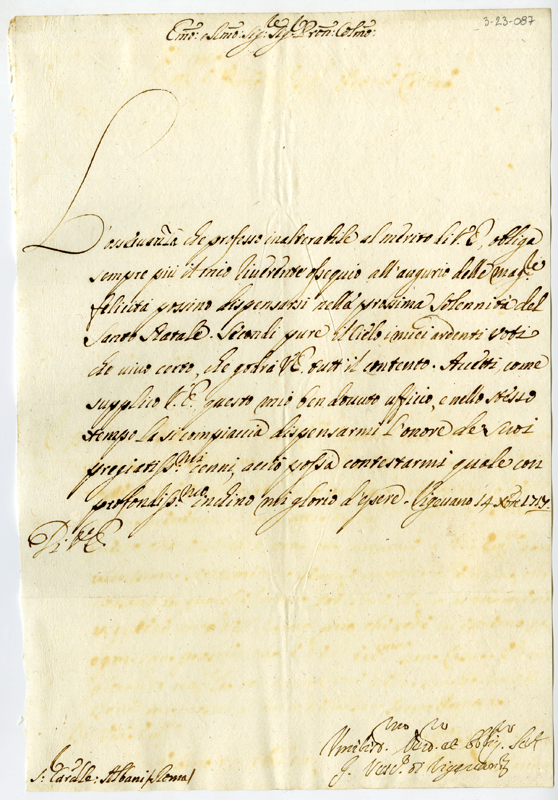 3-23-087
Emo: e Rmo: Sig:re Sig:re Pron: Colmo:
L'osservanza che professo inalterabile al merito di V.E., obliga
sempre più il mio riverente ossequio all'augurio delle mag:ri
felicità possino dispensarsi nella prossima Solennità del
Santo Natale. Secondi pure il Cielo i miei ardenti voti
che vivo certo, che godrà V.E. tutt'il contento. Accetti, come
supplico V.E. questo mio ben dovuto ufficio, e nello stesso
tempo la si compiaccia dispensarmi l'onore de suoi
pregiatiss:mi cenni, acciò possa contestarmi quale con
profondiss:mo inchino mi glorio d'essere. Vigevano 14 Xbre 1717.
Di V.E.
Umiliss:mo Dev:mo et Obblig:mo Ser:
G. Vesc:o di Vigevano
S: Cardle: Albani /Roma/